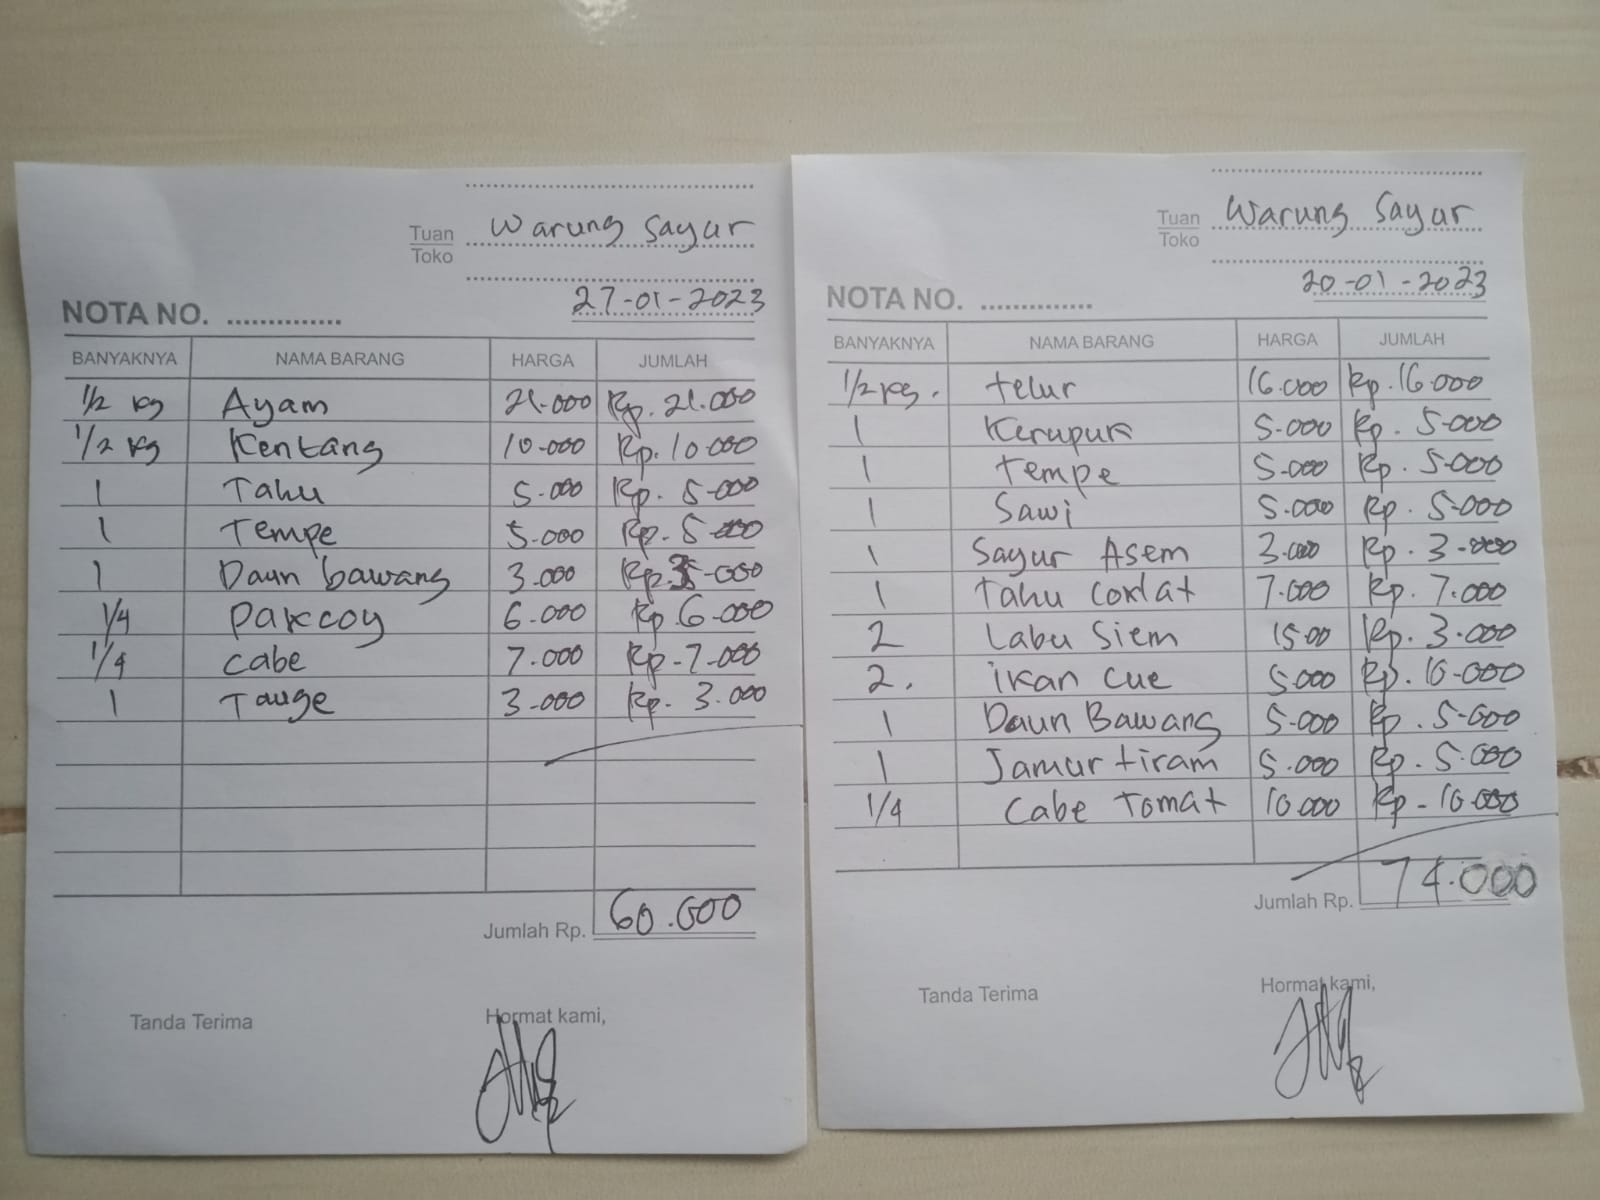 Tuan
Toko
Warung Sayur
27-01-2023
NOTA NO. ..............
BANYAKNYA NAMA BARANG HARGA JUMLAH
1/2 kg Ayam 21.000 Rp. 21.000
1/2 kg Kentang 10.000 Rp. 10.000
1 Tahu 5.000 Rp. 5.000
1 Tempe 5.000 Rp. 5.000
1 Daun bawang 3.000 Rp. 3.000
1/4 Pakcoy 6.000 Rp. 6.000
1/4 Cabe 7.000 Rp. 7.000
1 Tauge 3.000 Rp. 3.000
Jumlah Rp. 60.000
Tanda Terima Hormat kami,
Tuan
Toko
Warung Sayur
20-01-2023
NOTA NO. ..............
BANYAKNYA NAMA BARANG HARGA JUMLAH
1/2 kg. telur 16.000 Rp. 16.000
1 Kerupuk 5.000 Rp. 5.000
1 tempe 5.000 Rp. 5.000
1 Sawi 5.000 Rp. 5.000
1 Sayur Asem 3.000 Rp. 3.000
1 Tahu Coklat 7.000 Rp. 7.000
2 Labu Siem 1500 Rp. 3.000
2. ikan cue 5.000 Rp. 10.000
1 Daun Bawang 5.000 Rp. 5.000
1 Jamur tiram 5.000 Rp. 5.000
1/4 Cabe Tomat 10.000 Rp. 10.000
Jumlah Rp. 74.000
Tanda Terima Hormat kami,